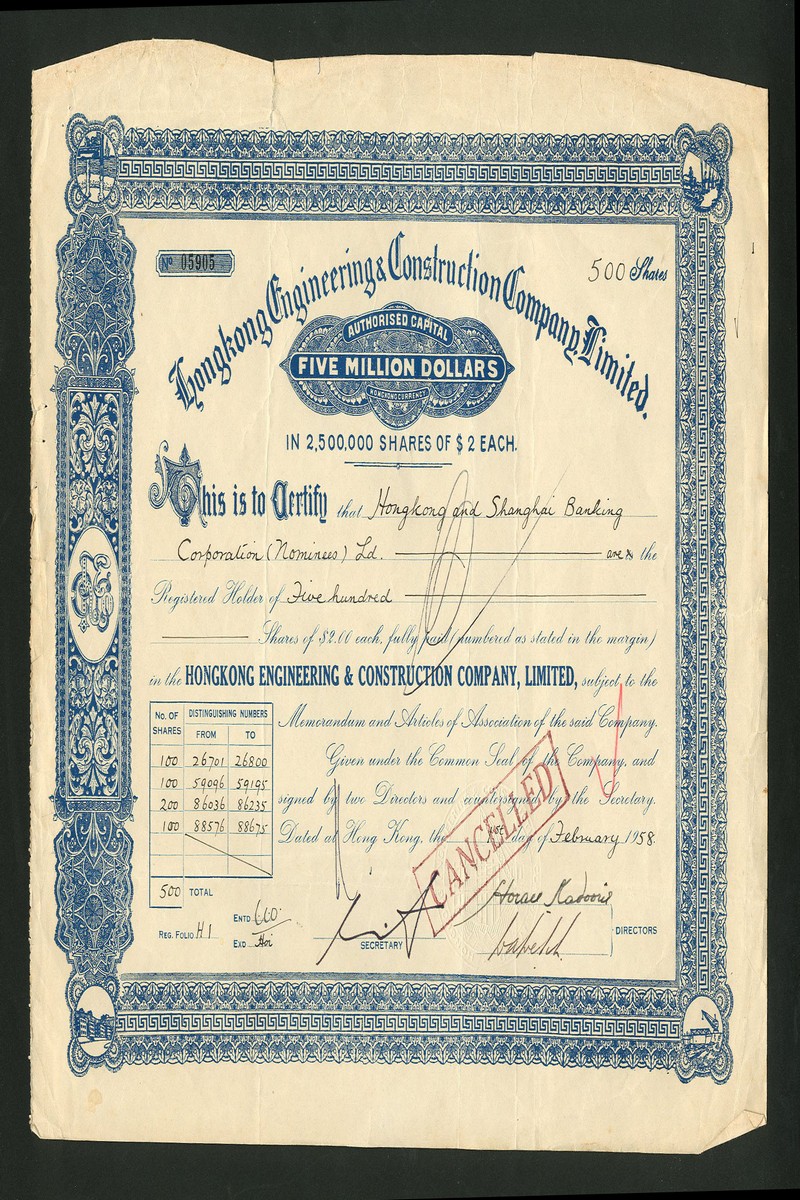 Nº 05905
500 Shares
Hongkong Engineering & Construction Company, Limited.
AUTHORISED CAPITAL
FIVE MILLION DOLLARS
HONGKONG CURRENCY
IN 2,500,000 SHARES OF $2 EACH.
This is to Certify that Hongkong and Shanghai Banking
Corporation (Nominees) Ld. are the
Registered Holder of Five hundred
Shares of $2.00 each, fully paid (numbered as stated in the margin)
in the HONGKONG ENGINEERING & CONSTRUCTION COMPANY, LIMITED, subject to the
Memorandum and Articles of Association of the said Company.
Given under the Common Seal of the Company, and
signed by two Directors and countersigned by the Secretary.
Dated at Hong Kong, the day of February 1958.
No. OF SHARES DISTINGUISHING NUMBERS
FROM TO
100 26701 26800
100 59096 59195
200 86036 86235
100 88576 88675
500 TOTAL
CANCELLED
REG. FOLIO H1
ENTD
EXD
SECRETARY
Horace Kadoorie
DIRECTORS